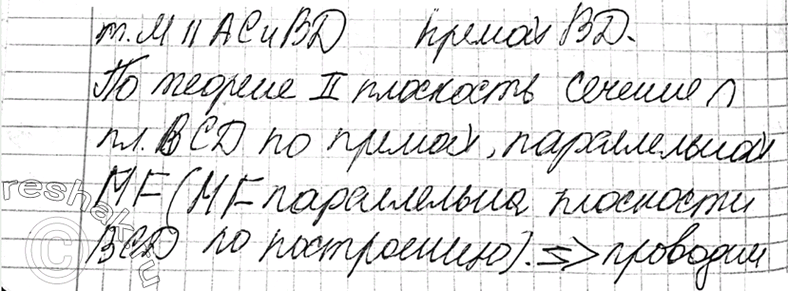 т. М || АС и BD прямой BD.
По теореме II плоскость сечение ∩
пл. BCD по прямой, параллельной
MF (MF параллельна плоскости
BCD по построению). => проводим
reshak.ru